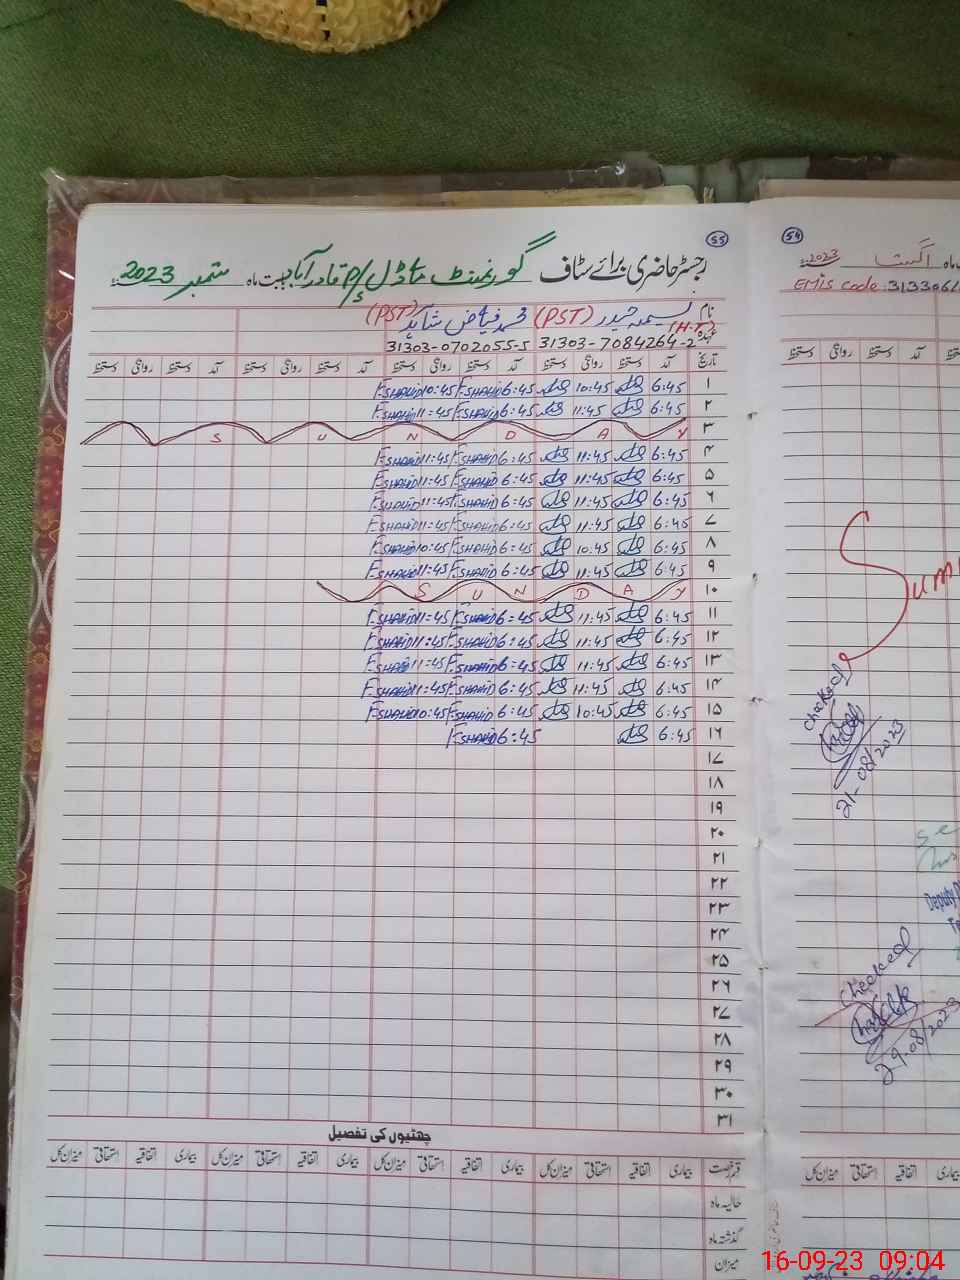 55
رجسٹر حاضری برائے سٹاف گورنمنٹ ماڈل P/S قادر آباد بابت ماہ ستمبر 2023
نام نسیمہ حیدر (PST) محمد فیاض شاہد (PST)
عہدہ (H.T)
31303-7084264-2 31303-0702055-5
تاریخ آمد دستخط روانگی دستخط آمد دستخط روانگی دستخط آمد دستخط روانگی دستخط آمد دستخط روانگی دستخط
۱ 6:45 10:45 6:45 F.SHAHID 10:45 F.SHAHID
۲ 6:45 11:45 6:45 F.SHAHID 11:45 F.SHAHID
۳ SUNDAY
۴ 6:45 11:45 6:45 F.SHAHID 11:45 F.SHAHID
۵ 6:45 11:45 6:45 F.SHAHID 11:45 F.SHAHID
۶ 6:45 11:45 6:45 F.SHAHID 11:45 F.SHAHID
۷ 6:45 11:45 6:45 F.SHAHID 11:45 F.SHAHID
۸ 6:45 10:45 6:45 F.SHAHID 10:45 F.SHAHID
۹ 6:45 11:45 6:45 F.SHAHID 11:45 F.SHAHID
۱۰ SUNDAY
۱۱ 6:45 11:45 6:45 F.SHAHID 11:45 F.SHAHID
۱۲ 6:45 11:45 6:45 F.SHAHID 11:45 F.SHAHID
۱۳ 6:45 11:45 6:45 F.SHAHID 11:45 F.SHAHID
۱۴ 6:45 11:45 6:45 F.SHAHID 11:45 F.SHAHID
۱۵ 6:45 10:45 6:45 F.SHAHID 10:45 F.SHAHID
۱۶ 6:45 6:45 F.SHAHID
۱۷
۱۸
۱۹
۲۰
۲۱
۲۲
۲۳
۲۴
۲۵
۲۶
۲۷
۲۸
۲۹
۳۰
۳۱
چھٹیوں کی تفصیل
قسم رخصت بیماری اتفاقیہ استحقاقی میزان کل بیماری اتفاقیہ استحقاقی میزان کل بیماری اتفاقیہ استحقاقی میزان کل بیماری اتفاقیہ استحقاقی میزان کل
حالیہ ماہ
گذشتہ ماہ
میزان
54
ماہ اگست 2023
EMIS Code: 3133061
آمد دستخط روانگی دستخط
Summ
Checked
21-08/2023
Deputy D
Checked
29.08/2023
بیماری اتفاقیہ استحقاقی میزان کل
16-09-23 09:04